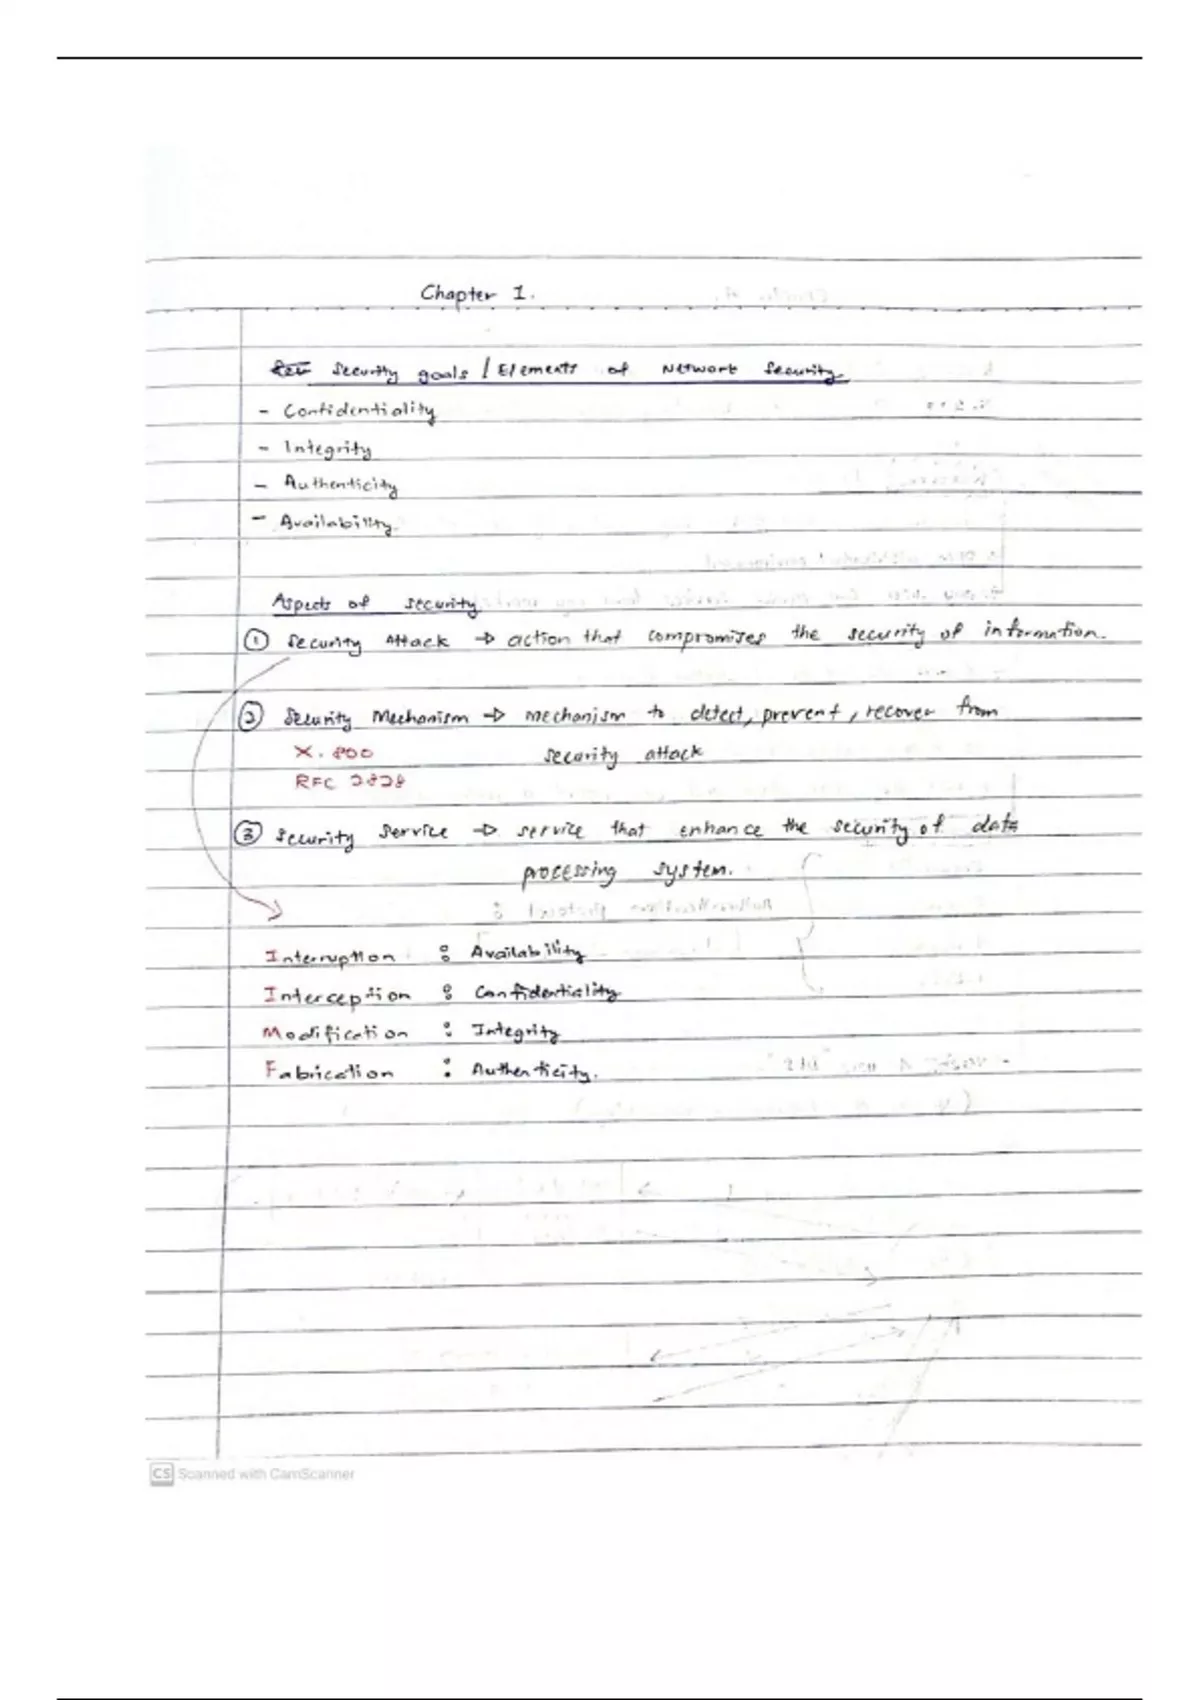 Chapter 1.
Security goals / Elements of Network Security
- Confidentiality
- Integrity
- Authenticity
- Availability.
Aspects of security
① Security Attack → action that compromises the security of information.
② Security Mechanism → mechanism to detect, prevent, recover from
X.800 security attack
RFC 2828
③ Security Service → service that enhance the security of data
processing system.
Interruption : Availability
Interception : Confidentiality
Modification : Integrity
Fabrication : Authenticity.
CS Scanned with CamScanner